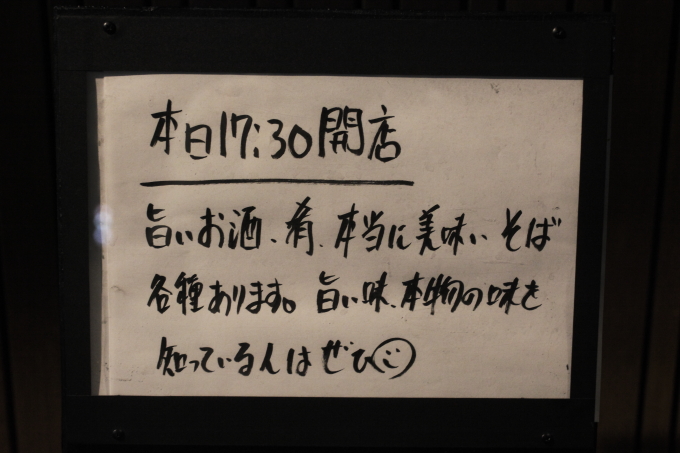 本日17:30開店
旨いお酒、肴、本当に美味いそば
各種あります。旨い味、本物の味を
知っている人はぜひ